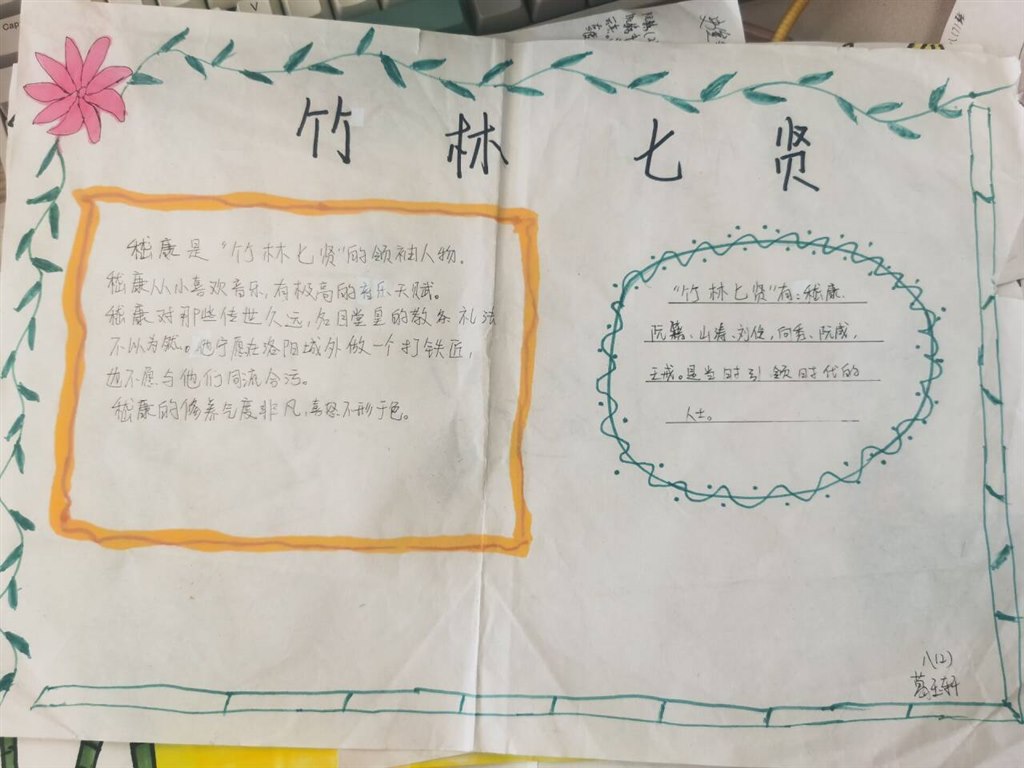 竹林七贤
嵇康是“竹林七贤”的领袖人物.
嵇康从小喜欢音乐,有极高的音乐天赋。
嵇康对那些传世久远,名目堂皇的教条礼法
不以为然。他宁愿在洛阳城外做一个打铁匠,
也不愿与他们同流合污。
嵇康的修养气度非凡,喜怒不形于色。
“竹林七贤”有:嵇康.
阮籍、山涛、刘伶,向秀、阮咸,
王戎。是当时引领时代的
人士。
八(2)